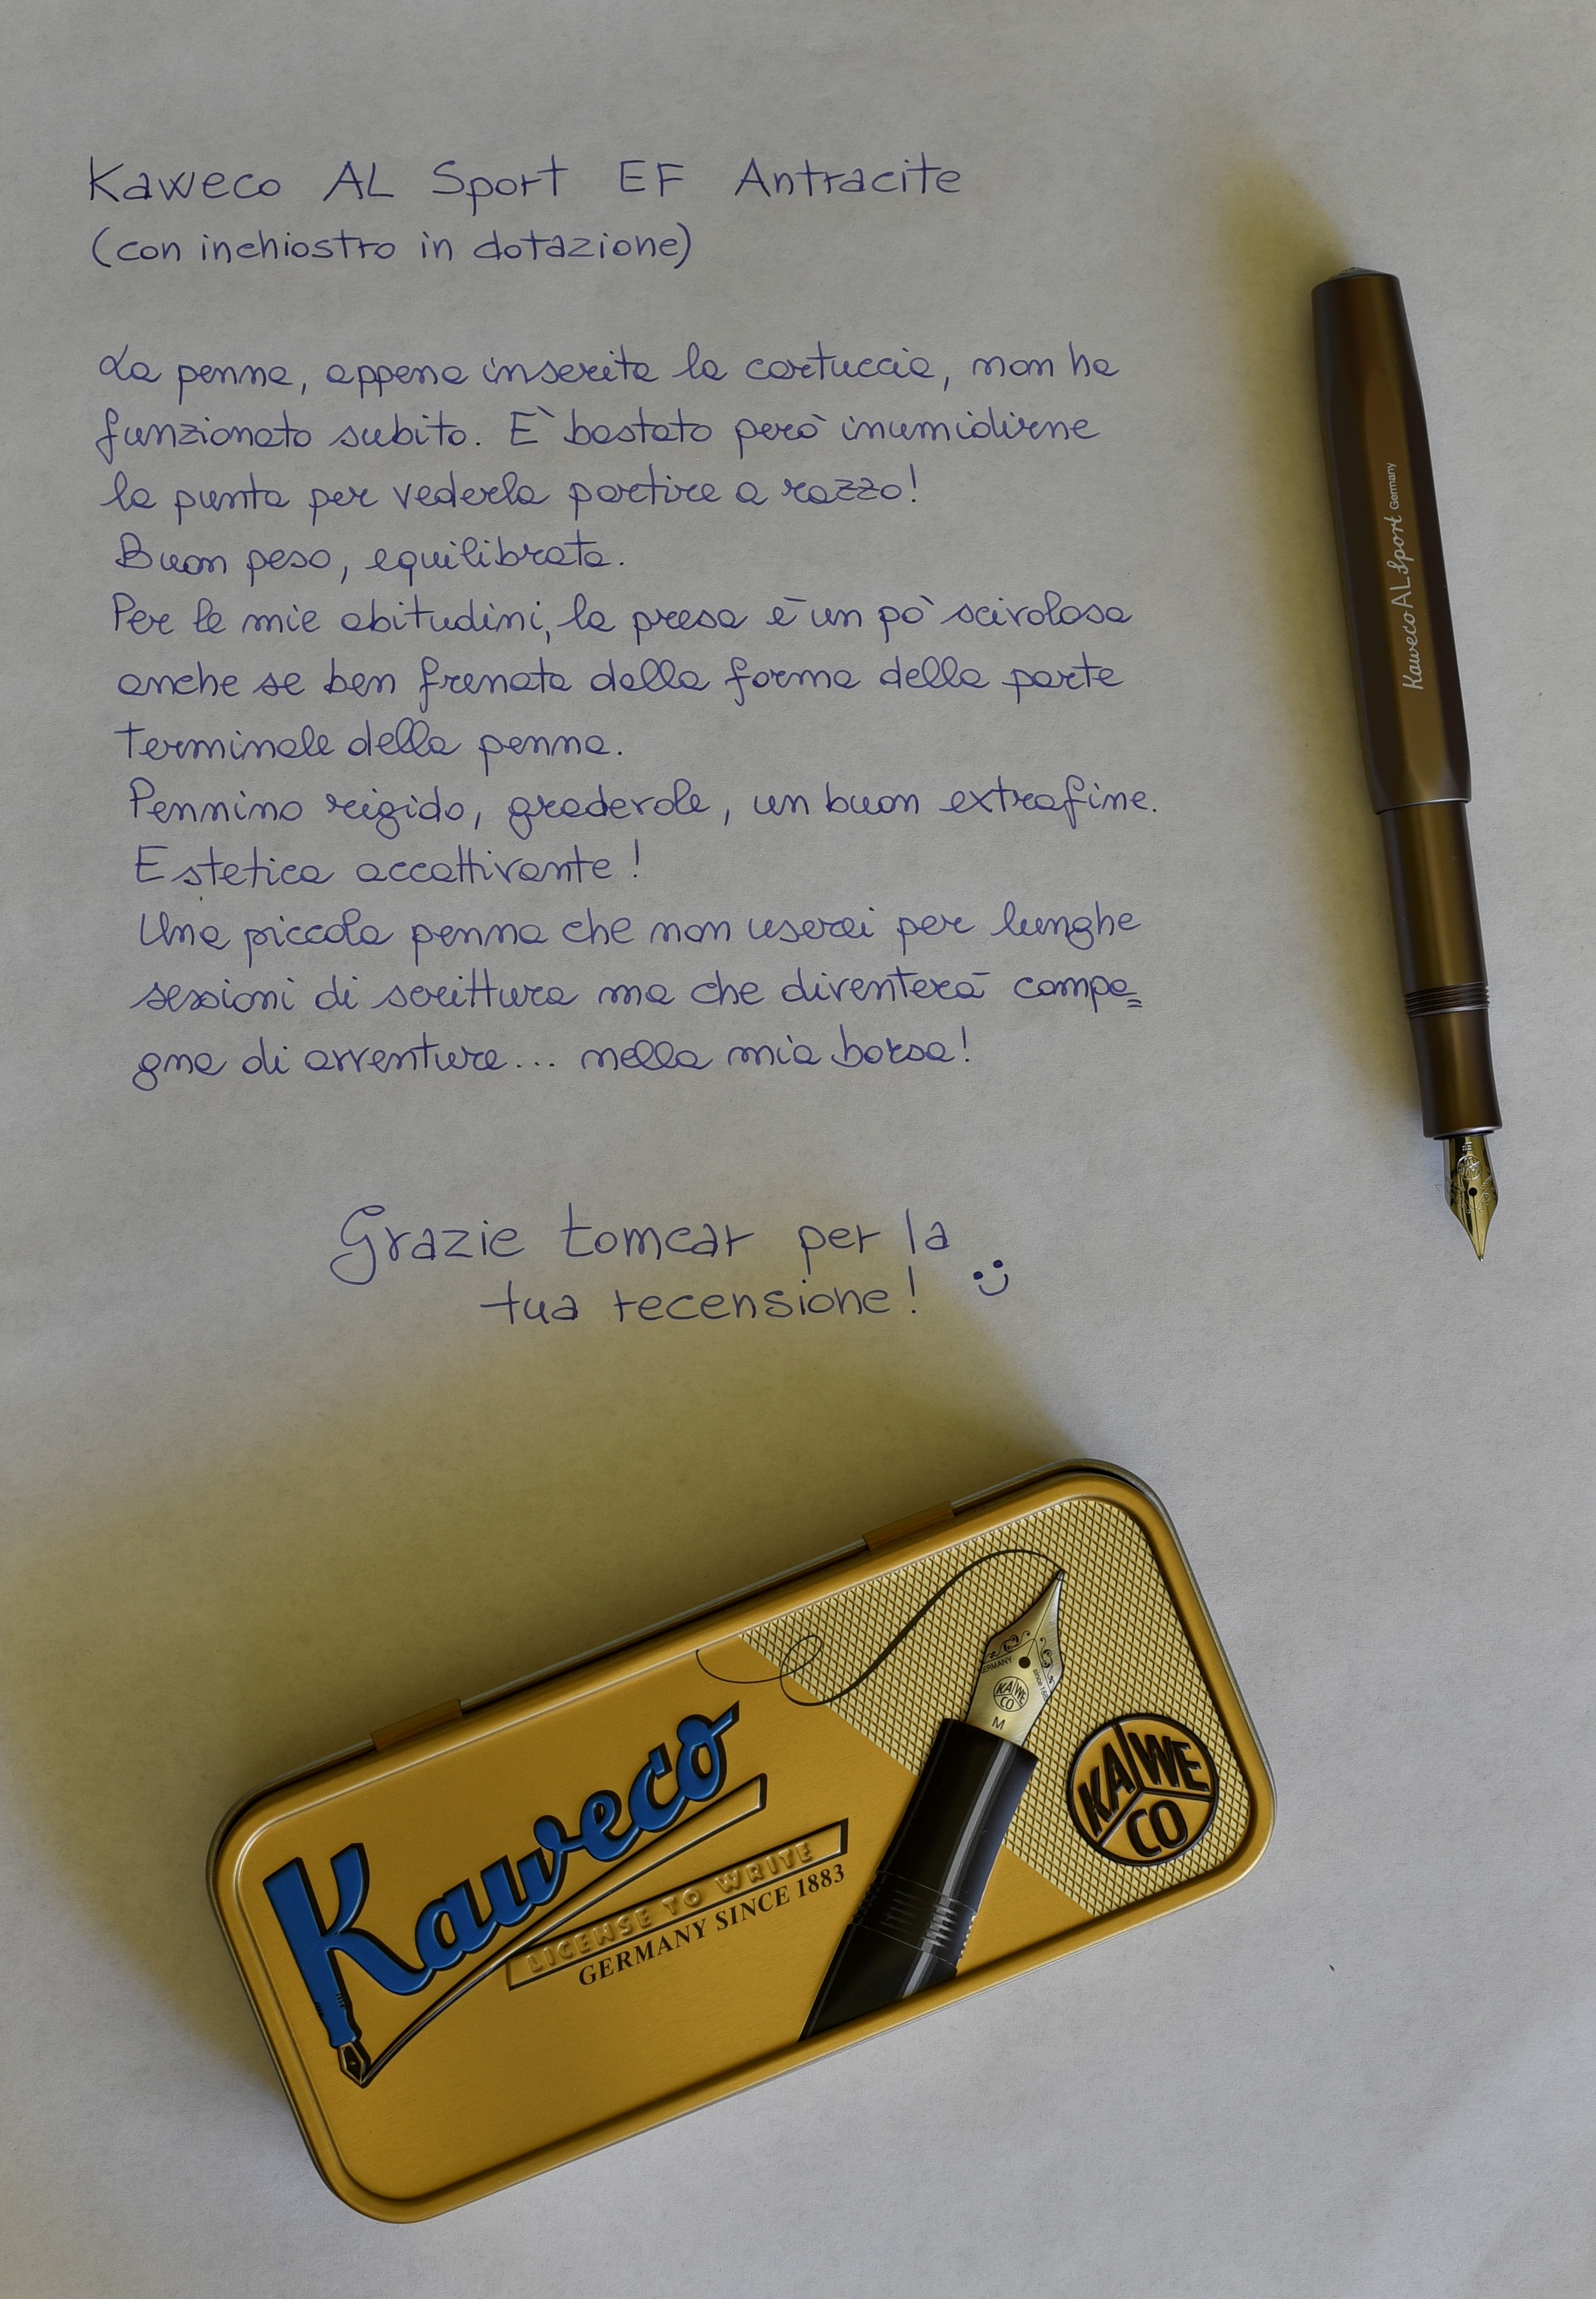 Kaweco AL Sport EF Antracite
(con inchiostro in dotazione)
La penna, appena inserita la cartuccia, non ha
funzionato subito. E` bastato però inumidirne
la punta per vederla partire a razzo!
Buon peso, equilibrata.
Per le mie abitudini, la presa è un pò scivolosa
anche se ben frenata dalla forma della parte
terminale della penna.
Pennino rigido, gradevole, un buon extrafine.
Estetica accattivante!
Una piccola penna che non userei per lunghe
sessioni di scrittura ma che diventerà compa=
gna di avventure... nella mia borsa!
Grazie tomcar per la
tua recensione! :)
Kaweco AL Sport Germany
Kaweco
LICENSE TO WRITE
GERMANY SINCE 1883
GERMANY
since 1883
KA WE CO
M
KA WE CO